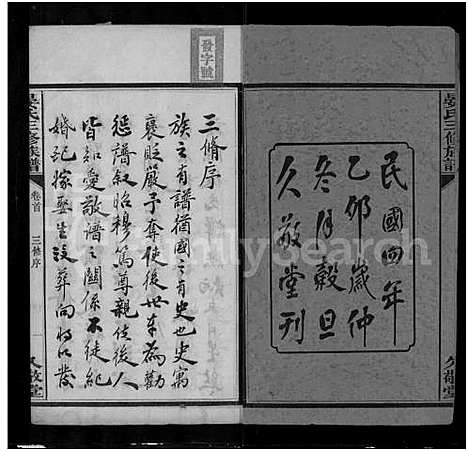 晏氏三修族譜
民國四年
乙卯歲仲
冬月穀旦
久敬堂刊
久敬堂
發字號
三脩序
族之有譜猶國之有史也史寓
褒貶嚴予奪使後世之為勸
懲譜叙昭穆篤尊親使後人
皆知愛敬譜之關係不徒紀
婚配嫁娶生沒葬向將以發
晏氏三修族譜
卷首
三修序
一
久敬堂
FamilySearch